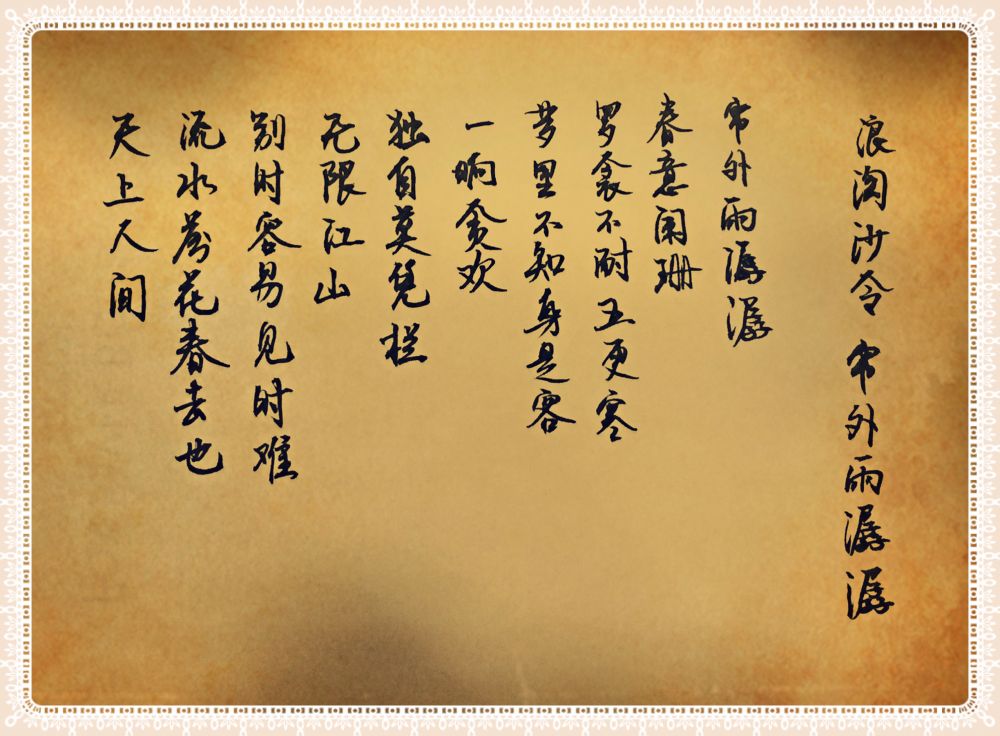 浪淘沙令 帘外雨潺潺
帘外雨潺潺
春意阑珊
罗衾不耐五更寒
梦里不知身是客
一晌贪欢
独自莫凭栏
无限江山
别时容易见时难
流水落花春去也
天上人间